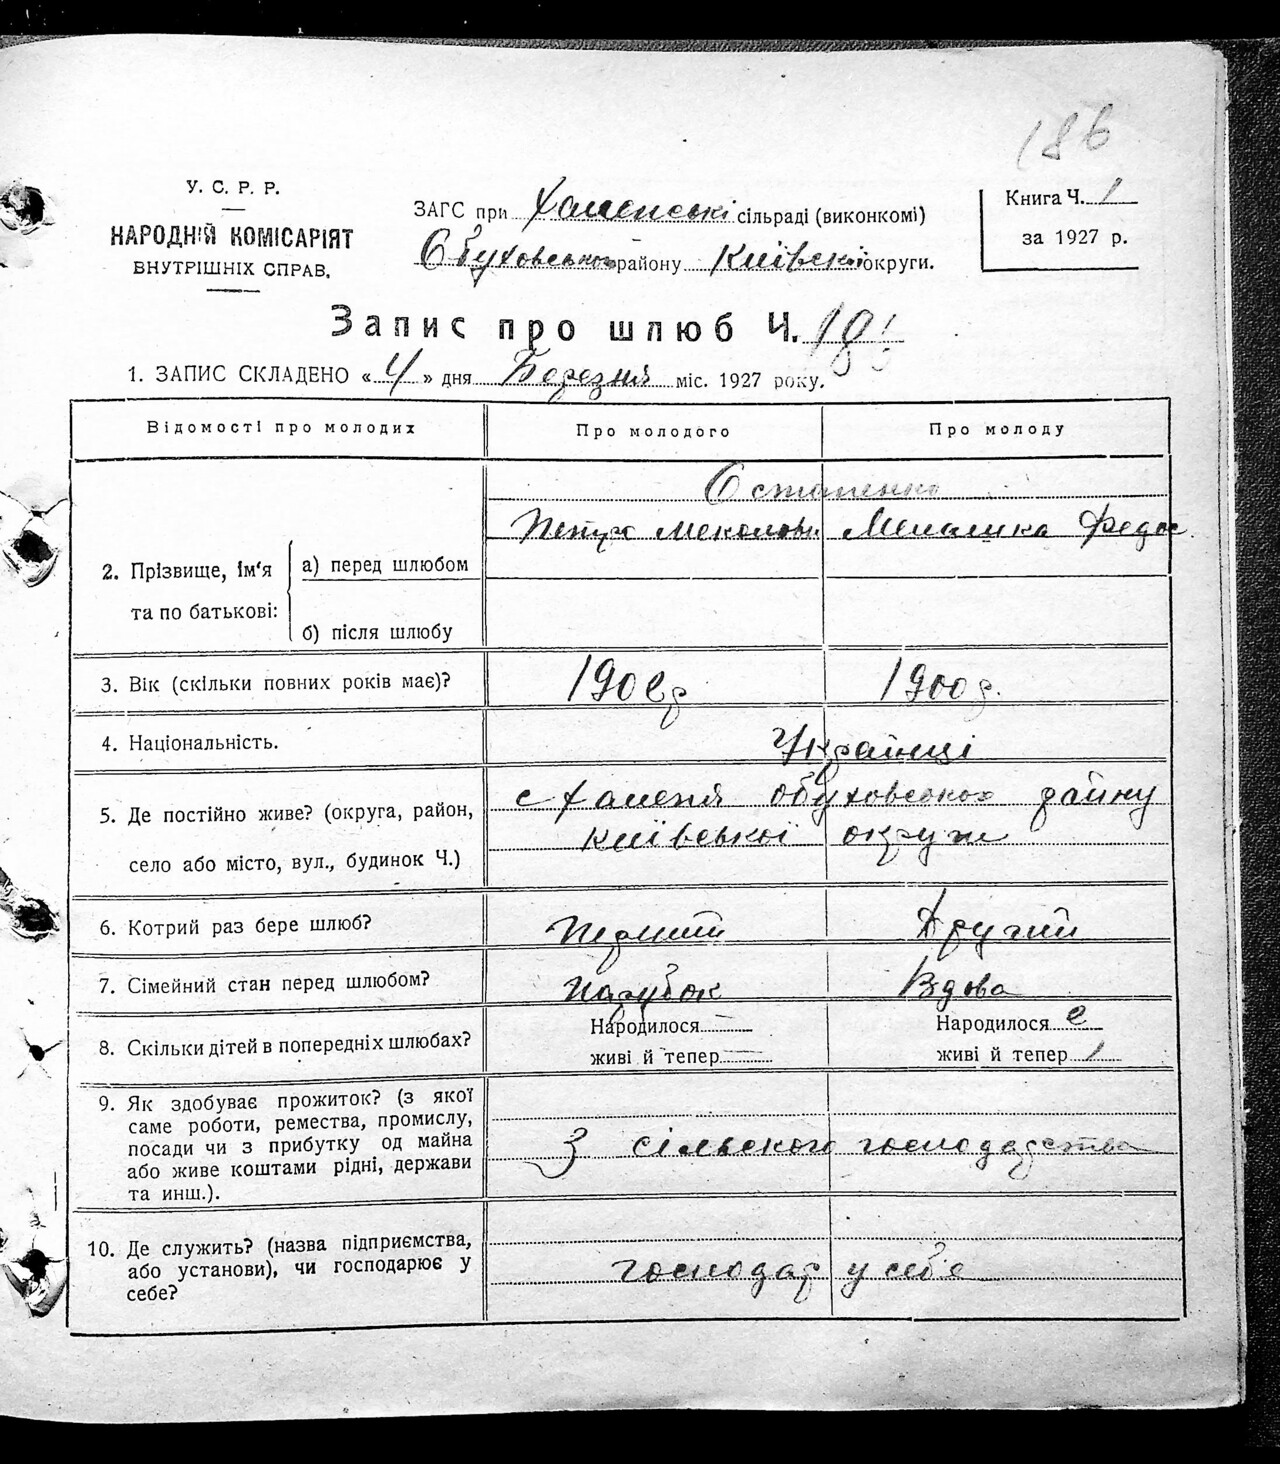 186
У. С. Р. Р.
НАРОДНІЙ КОМІСАРІЯТ
ВНУТРІШНІХ СПРАВ.
ЗАГС при сільраді (виконкомі)
Обуховського району Київської округи.
Книга Ч. 1
за 1927 р.
Запис про шлюб Ч. 18
1. ЗАПИС СКЛАДЕНО «4» дня Березня міс. 1927 року.
Відомості про молодих
Про молодого
Про молоду
Остапенко
2. Прізвище, ім'я
та по батькові:
а) перед шлюбом
б) після шлюбу
3. Вік (скільки повних років має)?
1900 р.
4. Національність.
Українці
5. Де постійно живе? (округа, район,
село або місто, вул., будинок Ч.)
с обуховського
київської округи
6. Котрий раз бере шлюб?
Перший
Другий
7. Сімейний стан перед шлюбом?
Парубок
Вдова
8. Скільки дітей в попередніх шлюбах?
Народилося —
живі й тепер —
Народилося
живі й тепер 1
9. Як здобуває прожиток? (з якої
саме роботи, ремества, промислу,
посади чи з прибутку од майна
або живе коштами рідні, держави
та инш.).
З сільского господарства
10. Де служить? (назва підприємства,
або установи), чи господарює у
себе?
господар у себе